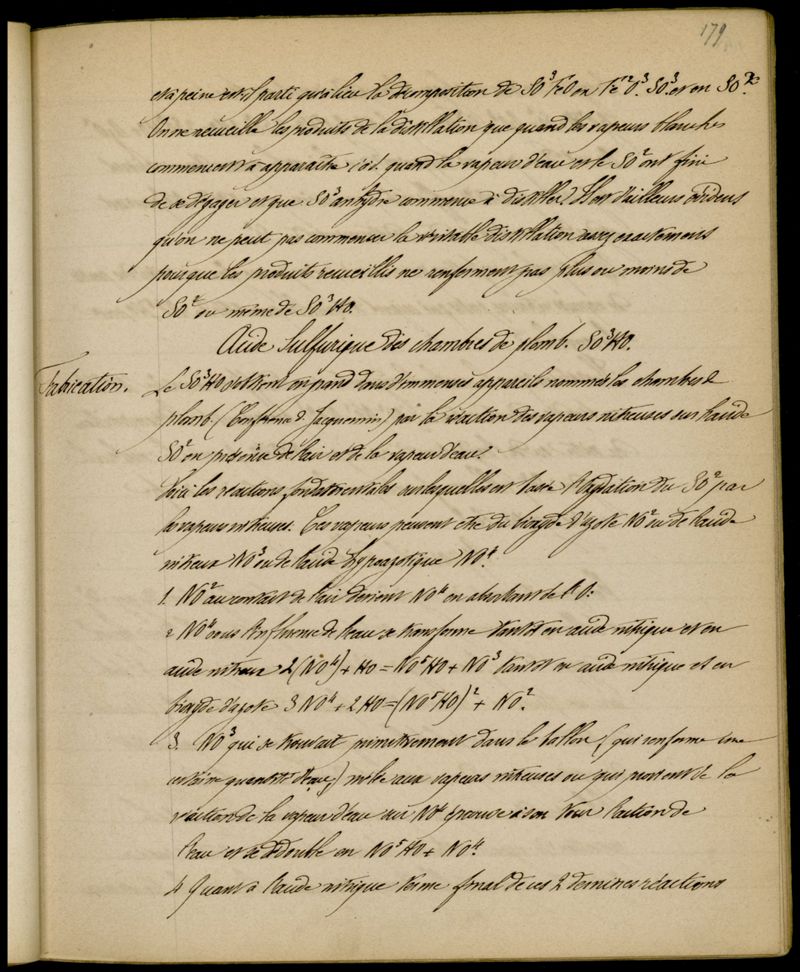 179
et à peine est-il parti qu'a lieu la décomposition de SO³ FeO en Fe²O³. SO³. et en SO².
On ne recueille les produits de la distillation que quand les vapeurs blanches
commencent à apparaître (càd. quand la vapeur d'eau et le SO² ont fini
de se dégager et que SO³ anhydre commence à distiller) Il est d'ailleurs évident
qu'on ne peut pas commencer la véritable distillation assez exactement
pour que les produits recueillis ne renferment pas plus ou moins de
SO² ou même de SO³ HO.
Acide Sulfurique des chambres de plomb. SO³HO.
Fabrication.
Le SO³HO s'obtient en grand dans d'immenses appareils nommés les chambres de
plomb. (Conférence d. Jacquemin) par la réaction des vapeurs nitreuses sur l'acide
SO² en présence de l'air et de la vapeur d'eau.
Voici les réactions fondamentales sur lesquelles est basée l'oxydation du SO² par
les vapeurs nitreuses. Ces vapeurs peuvent être du bioxyde d'azote NO² ou de l'acide
nitreux NO³ ou de l'acide hypoazotique NO⁴.
1. NO² au contact de l'air devient NO⁴ en absorbant de l'O:
2 NO⁴ sous l'influence de l'eau se transforme tantôt en acide nitrique et en
acide nitreux 2(NO⁴) + HO = NO⁵HO + NO³ tantôt en acide nitrique et en
bioxyde d'azote 3 NO⁴ + 2 HO = (NO⁵HO)² + NO².
3. NO³ qui se trouvait primitivement dans le ballon (qui renferme une
certaine quantité d'eau,) mêlé aux vapeurs nitreuses ou qui provient de la
réaction de la vapeur d'eau sur NO⁴ éprouve à son tour l'action de
l'eau et se dédouble en NO⁵HO + NO².
4 Quant à l'acide nitrique terme final de ces 2 dernières réactions